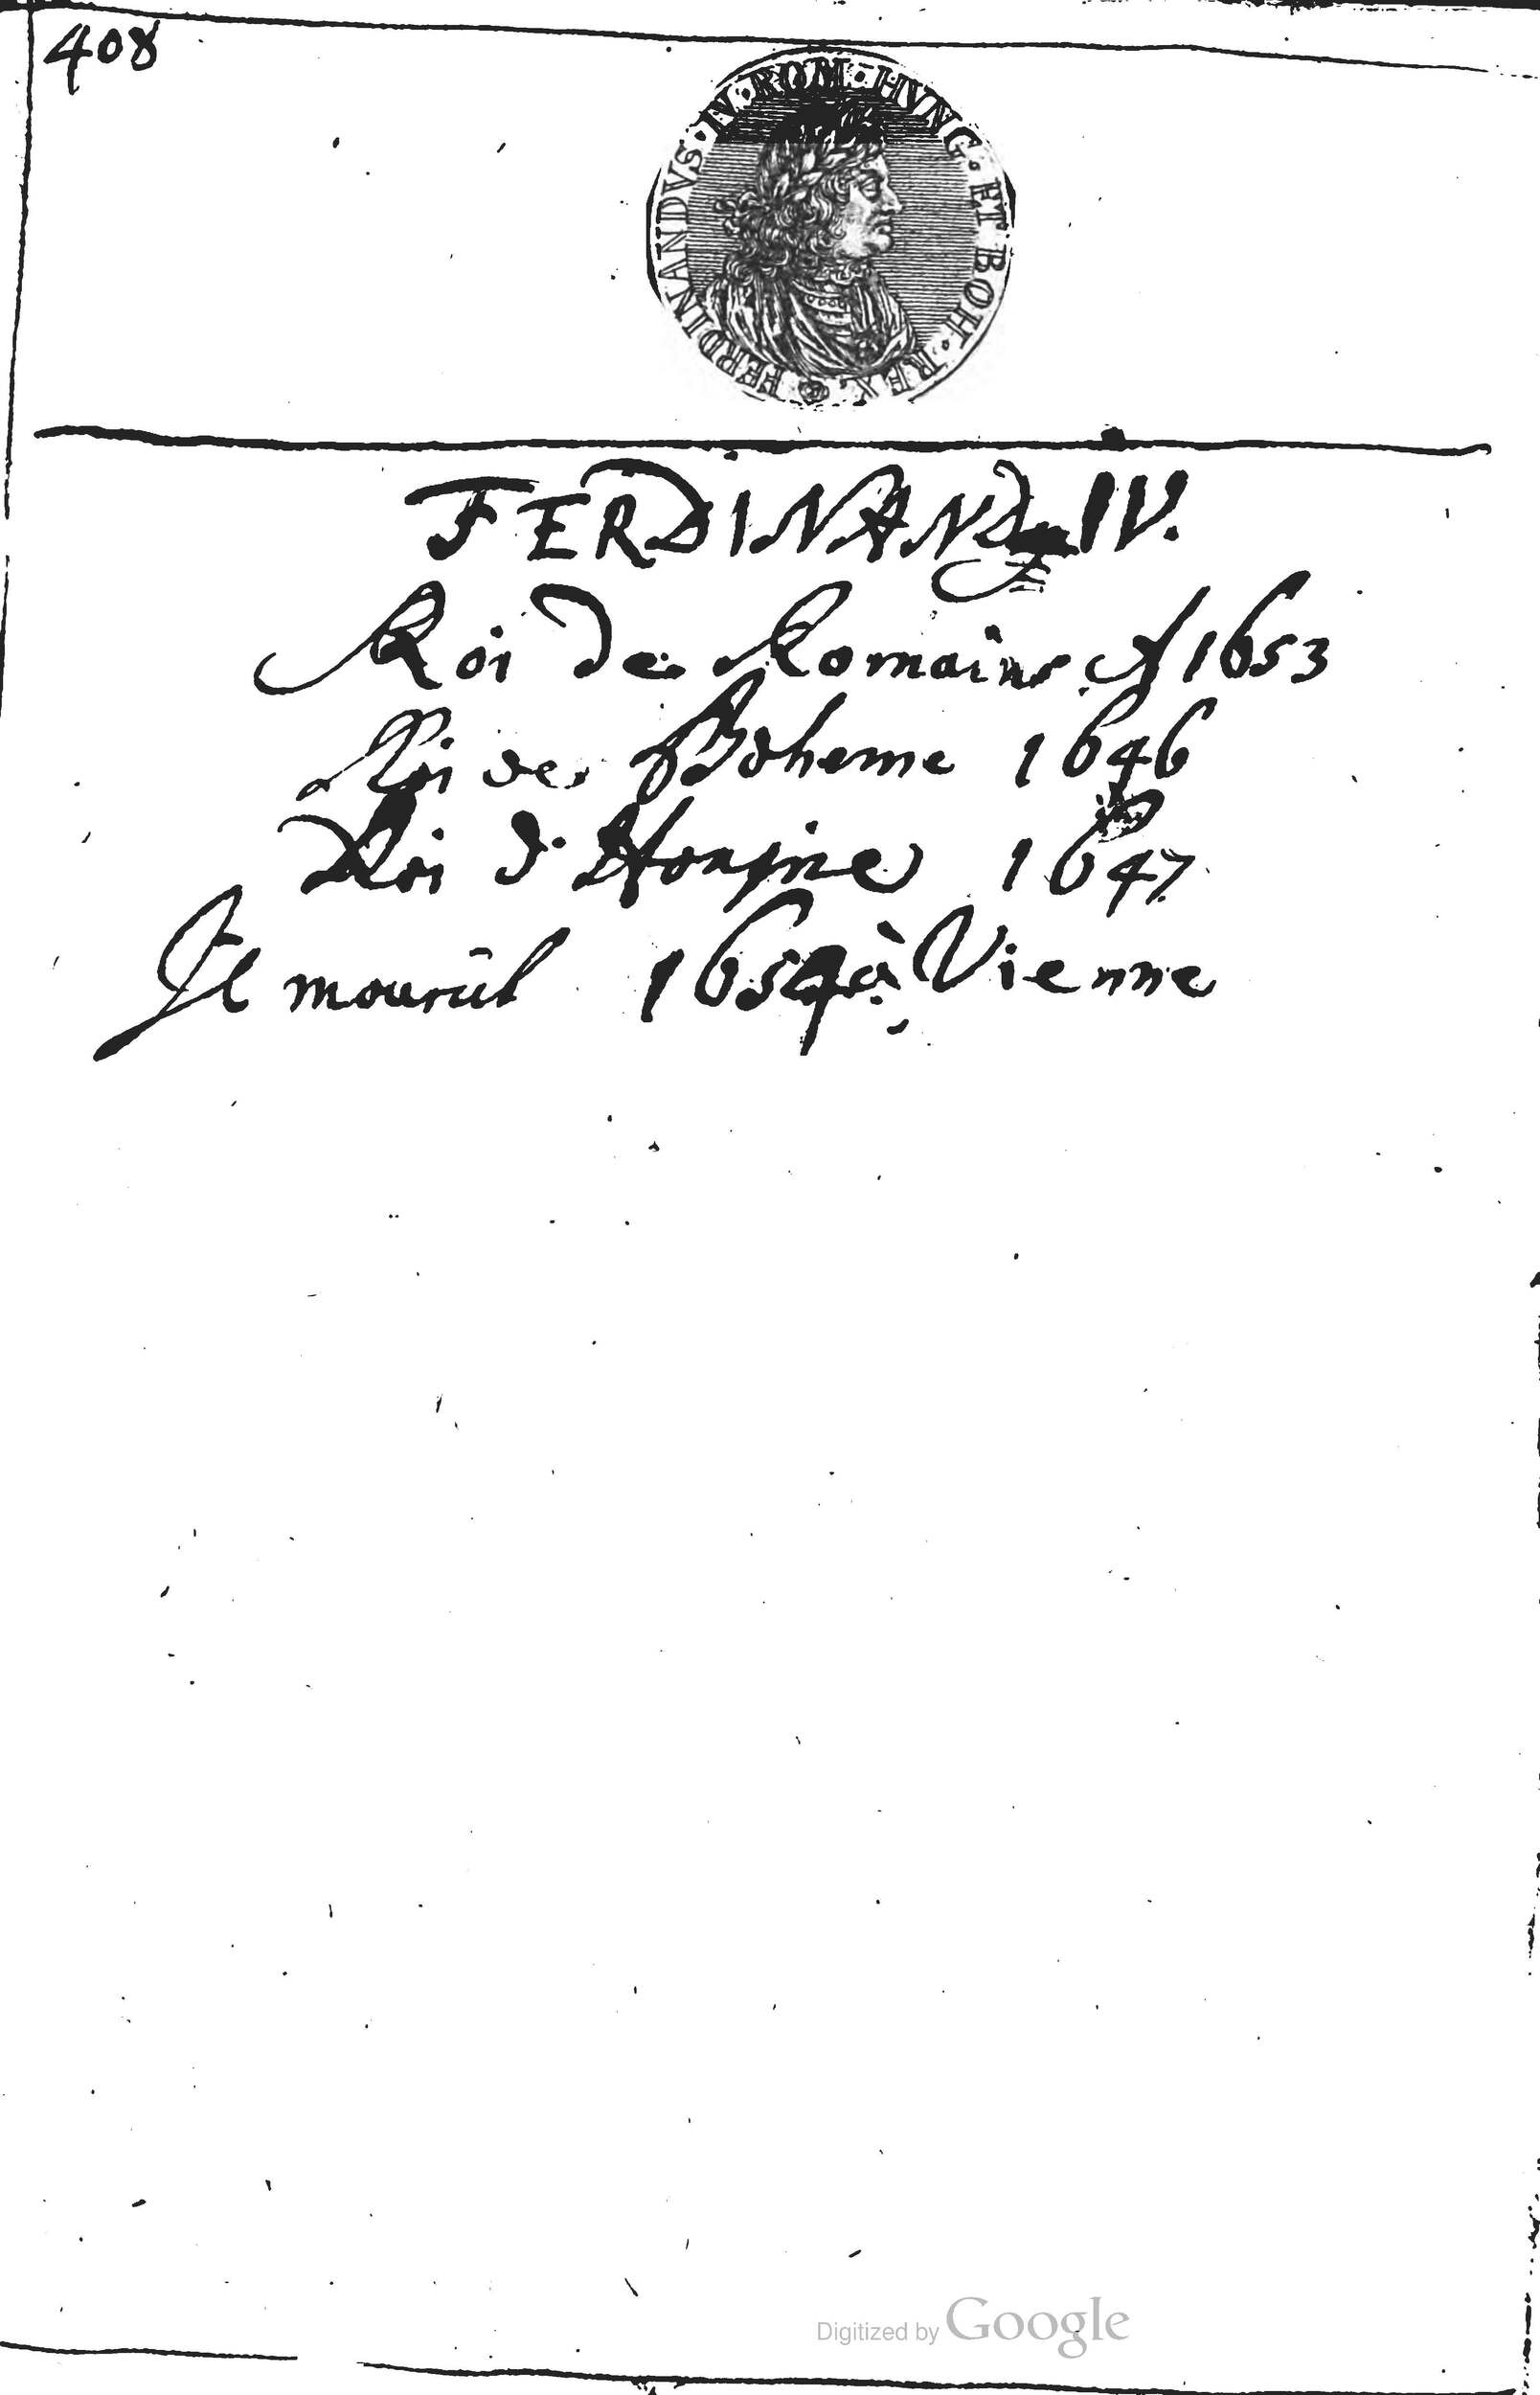 408
FERDINANDVS · IV · ROM · HVNG · ET · BOH · REX
FERDINAND IV.
Roi des Romains A 1653
Roi de Boheme 1646
Roi d'Hongrie 1647.
Il mourût 1654 à Vienne
Digitized by Google